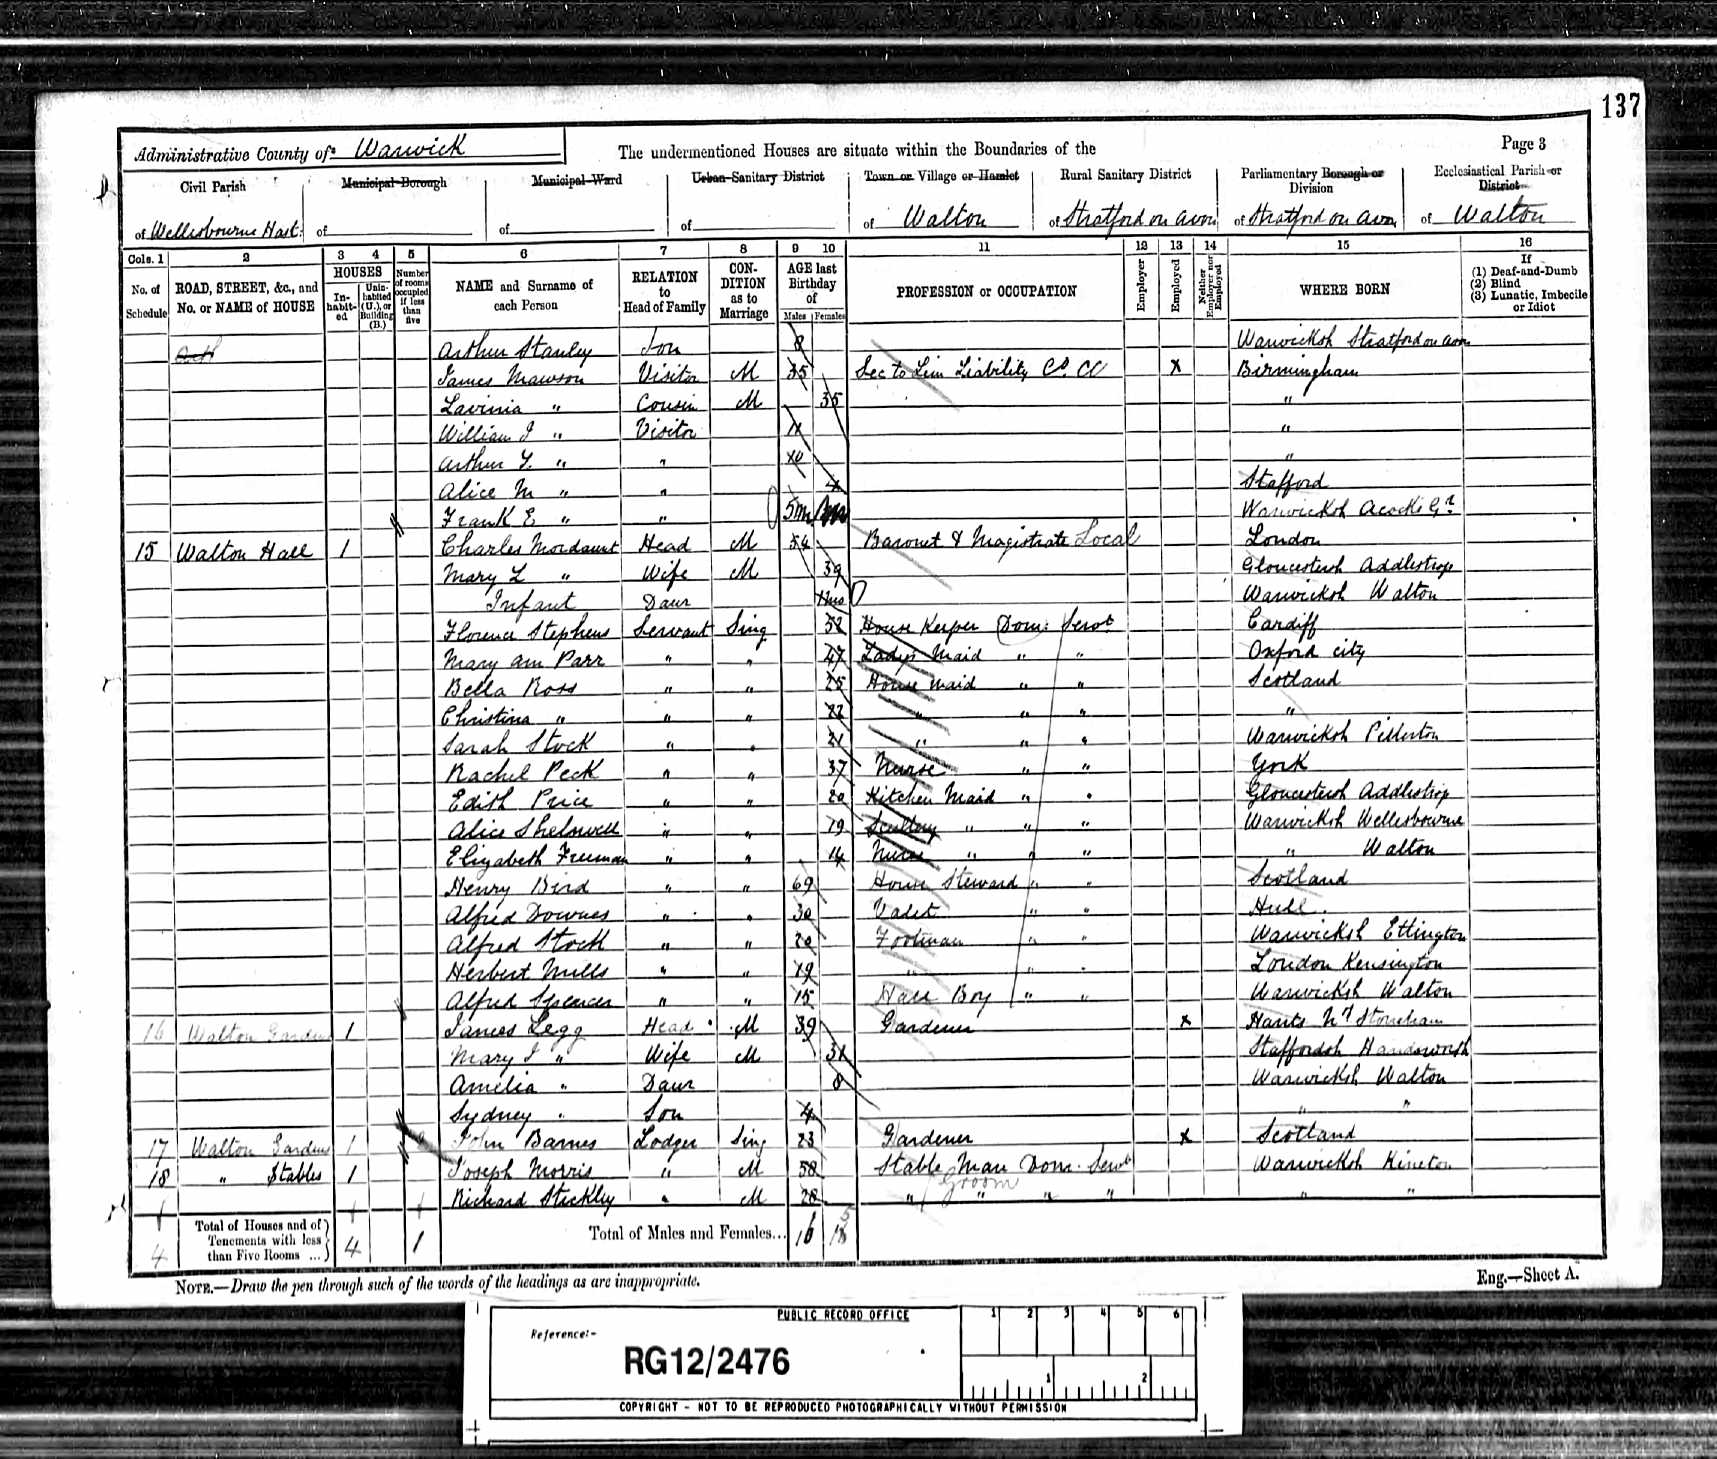 137
Administrative County of Warwick
The undermentioned Houses are situate within the Boundaries of the
Page 3
Civil Parish
Municipal Borough
Municipal Ward
Urban Sanitary District
Town or Village or Hamlet
Rural Sanitary District
Parliamentary Borough or Division
Ecclesiastical Parish or District
of Wellesbourne Hast.
of
of
of
of Walton
of Stratford on Avon
of Stratford on Avon
of Walton
Cols. 1 2 3 4 5 6 7 8 9 10 11 12 13 14 15 16
No. of Schedule
ROAD, STREET, &c., and No. or NAME of HOUSE
HOUSES
Inhabited
Uninhabited (U.), or Building (B.)
Number of rooms occupied if less than five
NAME and Surname of each Person
RELATION to Head of Family
CONDITION as to Marriage
AGE last Birthday of
Males Females
PROFESSION or OCCUPATION
Employer
Employed
Neither Employer nor Employed
WHERE BORN
If
(1) Deaf-and-Dumb
(2) Blind
(3) Lunatic, Imbecile or Idiot
Arthur Stanley Son 8 Warwicksh Stratford on Avon
James Mawson Visitor M 35 Sec to Lim Liability Co. CC X Birmingham
Lavinia " Cousin M 35 "
William J " Visitor 11 "
Arthur Y. " " 10 "
Alice M " " 4 Stafford
Frank E " " 5m Warwicksh Acocks Gn
15 Walton Hall 1 Charles Mordaunt Head M 54 Baronet & Magistrate Local London
Mary L " Wife M 39 Gloucestersh Addlestrop
Infant Daur Warwicksh Walton
Florence Stephens Servant Sing 32 House Keeper Dom: Servt Cardiff
Mary Ann Parr " " 47 Ladys Maid " " Oxford city
Bella Ross " " 25 House Maid " " Scotland
Christina " " " 22 " " " "
Sarah Stock " " 21 " " " Warwicksh Pillerton
Rachel Peck " " 37 Nurse " " York
Edith Price " " 20 Kitchen Maid " " Gloucestersh Addlestrop
Alice Shelswell " " 19 Scullery " " " Warwicksh Wellesbourne
Elizabeth Freeman " " 14 Nurse " " " " Walton
Henry Bird " " 69 House Steward " " Scotland
Alfred Downes " " 30 Valet " " Hull
Alfred Stock " " 20 Footman " " Warwicksh Ettington
Herbert Mills " " 19 " " " London Kensington
Alfred Spencer " " 15 Hall Boy " " Warwicksh Walton
16 Walton Gardens 1 James Legg Head M 39 Gardener X Hants Nth Stoneham
Mary J " Wife M 31 Staffordsh Handsworth
Amelia " Daur 8 Warwicksh Walton
Sydney " Son 4 " "
17 Walton Gardens 1 John Barnes Lodger Sing 23 Gardener X Scotland
18 " Stables 1 Joseph Morris " M 58 Stable Man Dom. Servt Warwicksh Kineton
Groom
Richard Stickley " M 28 " " " " " "
4
Total of Houses and of Tenements with less than Five Rooms ... 4 1
Total of Males and Females... 16 15
NOTE.—Draw the pen through such of the words of the headings as are inappropriate.
Eng.—Sheet A.
PUBLIC RECORD OFFICE
Reference:-
RG12/2476
1 2 3 4 5 6
1 2
COPYRIGHT - NOT TO BE REPRODUCED PHOTOGRAPHICALLY WITHOUT PERMISSION